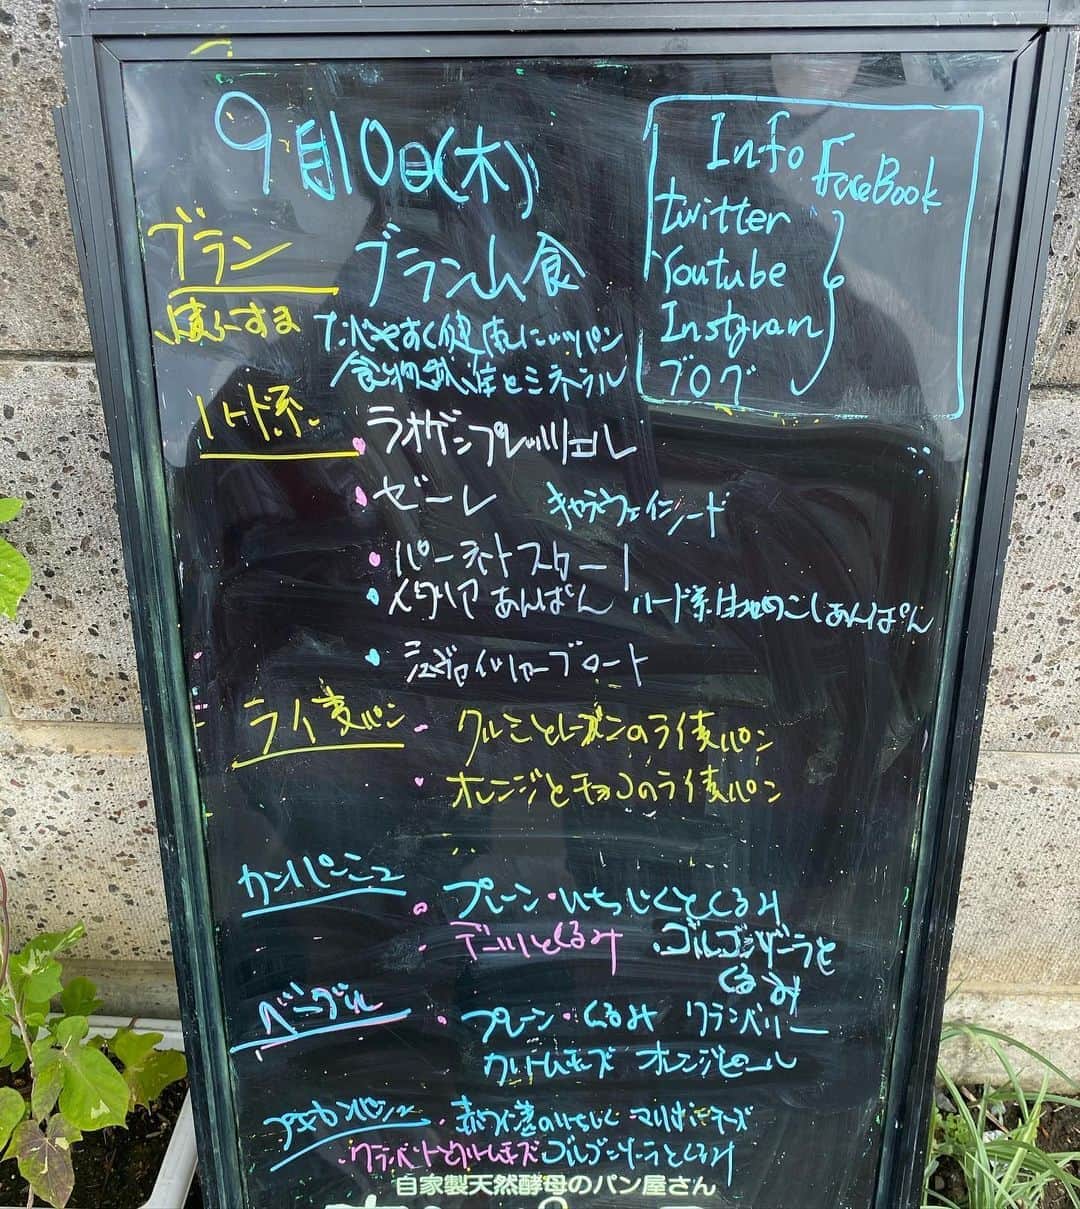 9月10日(木)
Info
FaceBook
twitter
Youtube
Instgram
ブログ
ブラン
ふすま
ブラン山食
たべやすく健康にいいパン
食物繊維とミネラル
ハード系
・ラオゲンプレッツェル
・ゼーレ キャラウェイシード
・バタートースター
・イタリアあんぱん ハード系生地のこしあんぱん
・シュヴァイツァーブロート
ライ麦パン
・クルミとレーズンのライ麦パン
・オレンジとチョコのライ麦パン
カンパーニュ
・プレーン・いちじくとくるみ
デーツとくるみ ・ゴルゴンゾーラと
くるみ
ベーグル
・プレーン・くるみ クランベリー
クリームチーズ オレンジピール
プチカンパーニュ
・赤ワイン煮のいちじく マリボーチーズ
・クランベリーとクリームチーズ ゴルゴンゾーラとくるみ
自家製天然酵母のパン屋さん